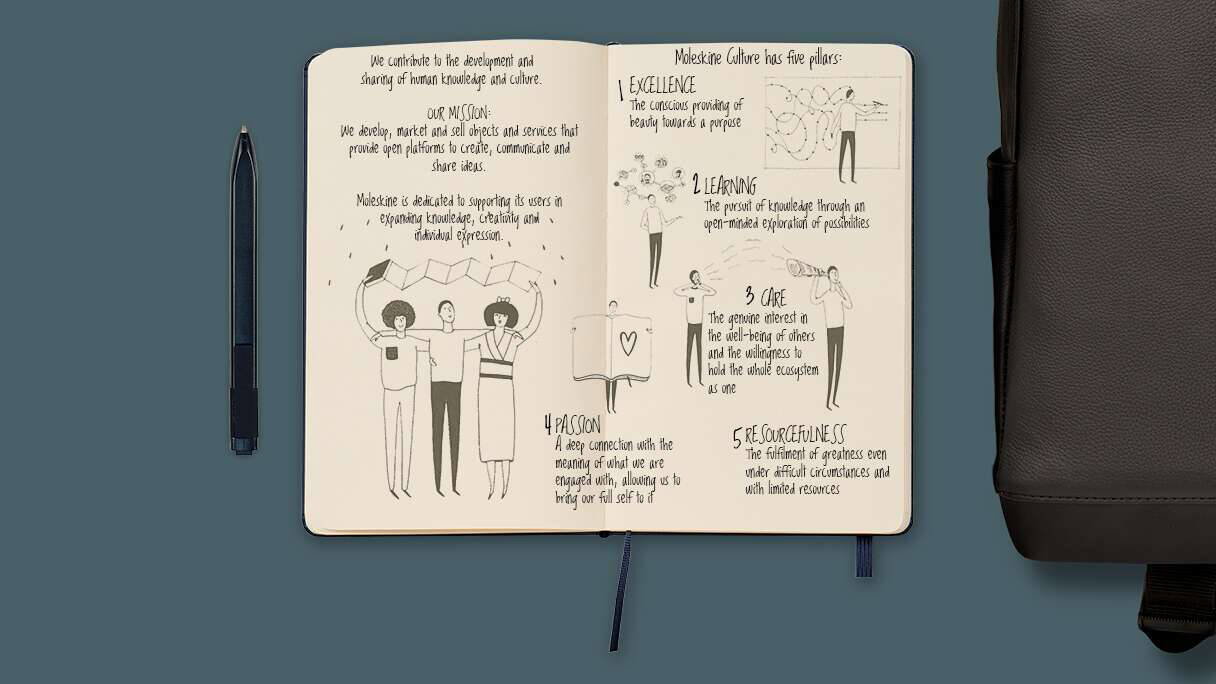 We contribute to the development and
sharing of human knowledge and culture.
OUR MISSION:
We develop, market and sell objects and services that
provide open platforms to create, communicate and
share ideas.
Moleskine is dedicated to supporting its users in
expanding knowledge, creativity and
individual expression.
Moleskine Culture has five pillars:
1 EXCELLENCE
The conscious providing of
beauty towards a purpose
2 LEARNING
The pursuit of knowledge through an
open-minded exploration of possibilities
3 CARE
The genuine interest in
the well-being of others
and the willingness to
hold the whole ecosystem
as one
4 PASSION
A deep connection with the
meaning of what we are
engaged with, allowing us to
bring our full self to it
5 RESOURCEFULNESS
The fulfilment of greatness even
under difficult circumstances and
with limited resources